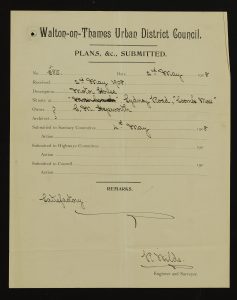 Walton-on-Thames Urban District Council.
PLANS, &c., SUBMITTED.
No. 585. Date 2nd May 1908
Received 2nd May 1908
Description Motor House
Situate at Sydney Road, "Coombe
Owner ? C. M. Hepworth
Architect ?
Submitted to Sanitary Committee 2nd May 1908
Action
Submitted to Highways Committee 190
Action
Submitted to Council 190
Action
REMARKS.
Satisfactory
Wilds
Engineer and Surveyor.